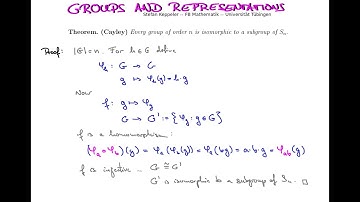 GROUPS AND REPRESENTATIONS
Stefan Keppeler – FB Mathematik – Universität Tübingen
Theorem. (Cayley) Every group of order n is isomorphic to a subgroup of Sₙ.
Proof: |G| = n. For h ∈ G define
φₕ : G → G
g ↦ φₕ(g) = h·g
Now
f : g ↦ φ_g
G → G' := {φ_g : g ∈ G}
f is a homomorphism:
(φₐ ∘ φ_b)(g) = φₐ(φ_b(g)) = φₐ(bg) = a·b·g = φ_ab(g)
f is injective
G ≅ G'
G' is isomorphic to a subgroup of Sₙ. □